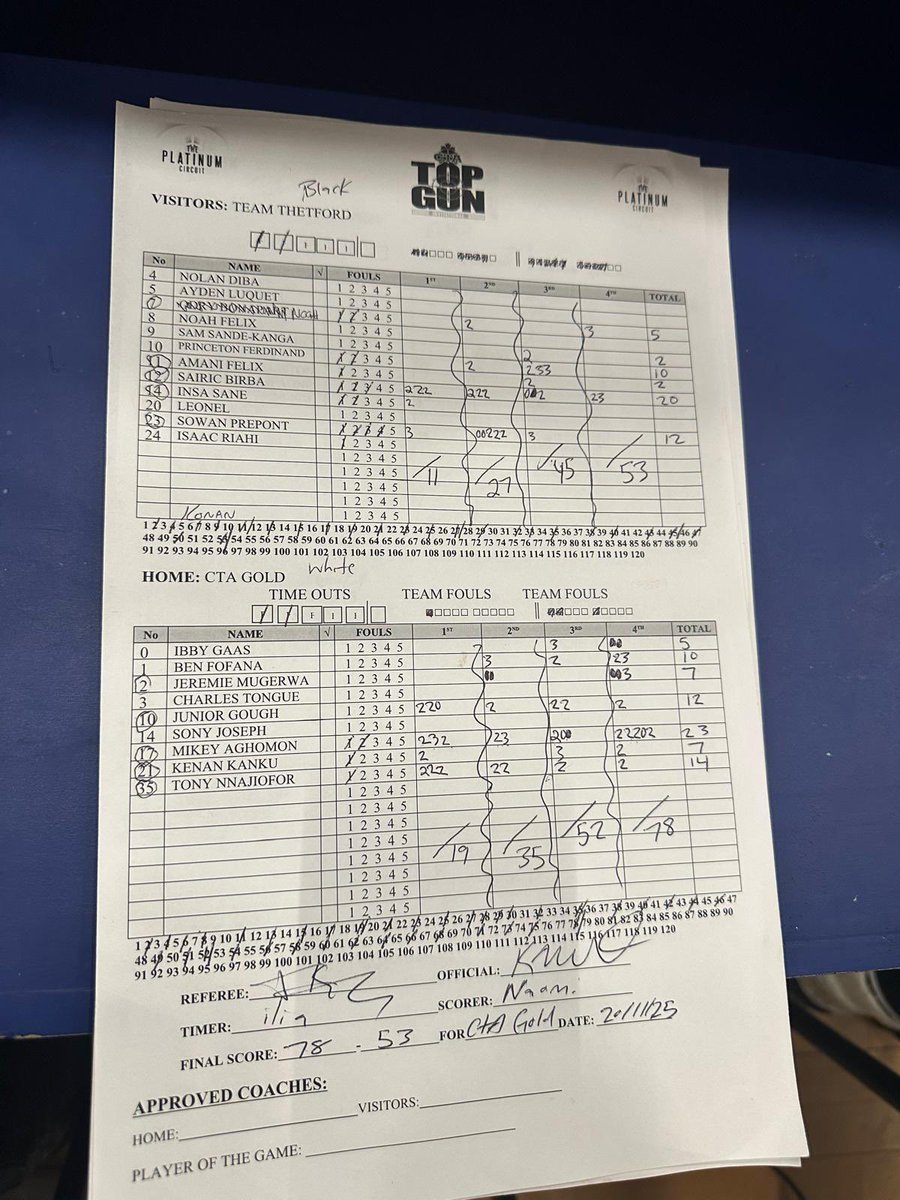 THE
PLATINUM
CIRCUIT
TOP
GUN
INVITATIONAL
THE
PLATINUM
CIRCUIT
Black
VISITORS: TEAM THETFORD
No NAME √ FOULS 1ST 2ND 3RD 4TH TOTAL
4 NOLAN DIBA 1 2 3 4 5
5 AYDEN LUQUET 1 2 3 4 5
7 Noah 1 2 3 4 5
8 NOAH FELIX 1 2 3 4 5 2 3 5
9 SAM SANDE-KANGA 1 2 3 4 5
10 PRINCETON FERDINAND 1 2 3 4 5 2 2
11 AMANI FELIX 1 2 3 4 5 2 233 10
12 SAIRIC BIRBA 1 2 3 4 5 2 2
14 INSA SANE 1 2 3 4 5 222 222 2 23 20
20 LEONEL 1 2 3 4 5 2
23 SOWAN PREPONT 1 2 3 4 5
24 ISAAC RIAHI 1 2 3 4 5 3 00222 3 12
1 2 3 4 5
1 2 3 4 5 /11 /27 /45 /53
1 2 3 4 5
1 2 3 4 5
KONAN 1 2 3 4 5
1 2 3 4 5 6 7 8 9 10 11 12 13 14 15 16 17 18 19 20 21 22 23 24 25 26 27 28 29 30 31 32 33 34 35 36 37 38 39 40 41 42 43 44 45 46 47
48 49 50 51 52 53 54 55 56 57 58 59 60 61 62 63 64 65 66 67 68 69 70 71 72 73 74 75 76 77 78 79 80 81 82 83 84 85 86 87 88 89 90
91 92 93 94 95 96 97 98 99 100 101 102 103 104 105 106 107 108 109 110 111 112 113 114 115 116 117 118 119 120
White
HOME: CTA GOLD
TIME OUTS TEAM FOULS TEAM FOULS
No NAME √ FOULS 1ST 2ND 3RD 4TH TOTAL
0 IBBY GAAS 1 2 3 4 5 3 5
1 BEN FOFANA 1 2 3 4 5 3 2 23 10
2 JEREMIE MUGERWA 1 2 3 4 5 3 7
3 CHARLES TONGUE 1 2 3 4 5
10 JUNIOR GOUGH 1 2 3 4 5 220 2 22 2 12
14 SONY JOSEPH 1 2 3 4 5
17 MIKEY AGHOMON 1 2 3 4 5 232 23 200 22202 23
21 KENAN KANKU 1 2 3 4 5 2 3 2 7
35 TONY NNAJIOFOR 1 2 3 4 5 222 22 2 2 14
1 2 3 4 5
1 2 3 4 5
1 2 3 4 5
1 2 3 4 5 /19 /35 /52 /78
1 2 3 4 5
1 2 3 4 5
1 2 3 4 5
1 2 3 4 5
1 2 3 4 5 6 7 8 9 10 11 12 13 14 15 16 17 18 19 20 21 22 23 24 25 26 27 28 29 30 31 32 33 34 35 36 37 38 39 40 41 42 43 44 45 46 47
48 49 50 51 52 53 54 55 56 57 58 59 60 61 62 63 64 65 66 67 68 69 70 71 72 73 74 75 76 77 78 79 80 81 82 83 84 85 86 87 88 89 90
91 92 93 94 95 96 97 98 99 100 101 102 103 104 105 106 107 108 109 110 111 112 113 114 115 116 117 118 119 120
REFEREE: OFFICIAL:
TIMER: ilia SCORER: Naam.
FINAL SCORE: 78 - 53 FOR CTA Gold DATE: 20/11/25
APPROVED COACHES:
HOME: VISITORS:
PLAYER OF THE GAME: